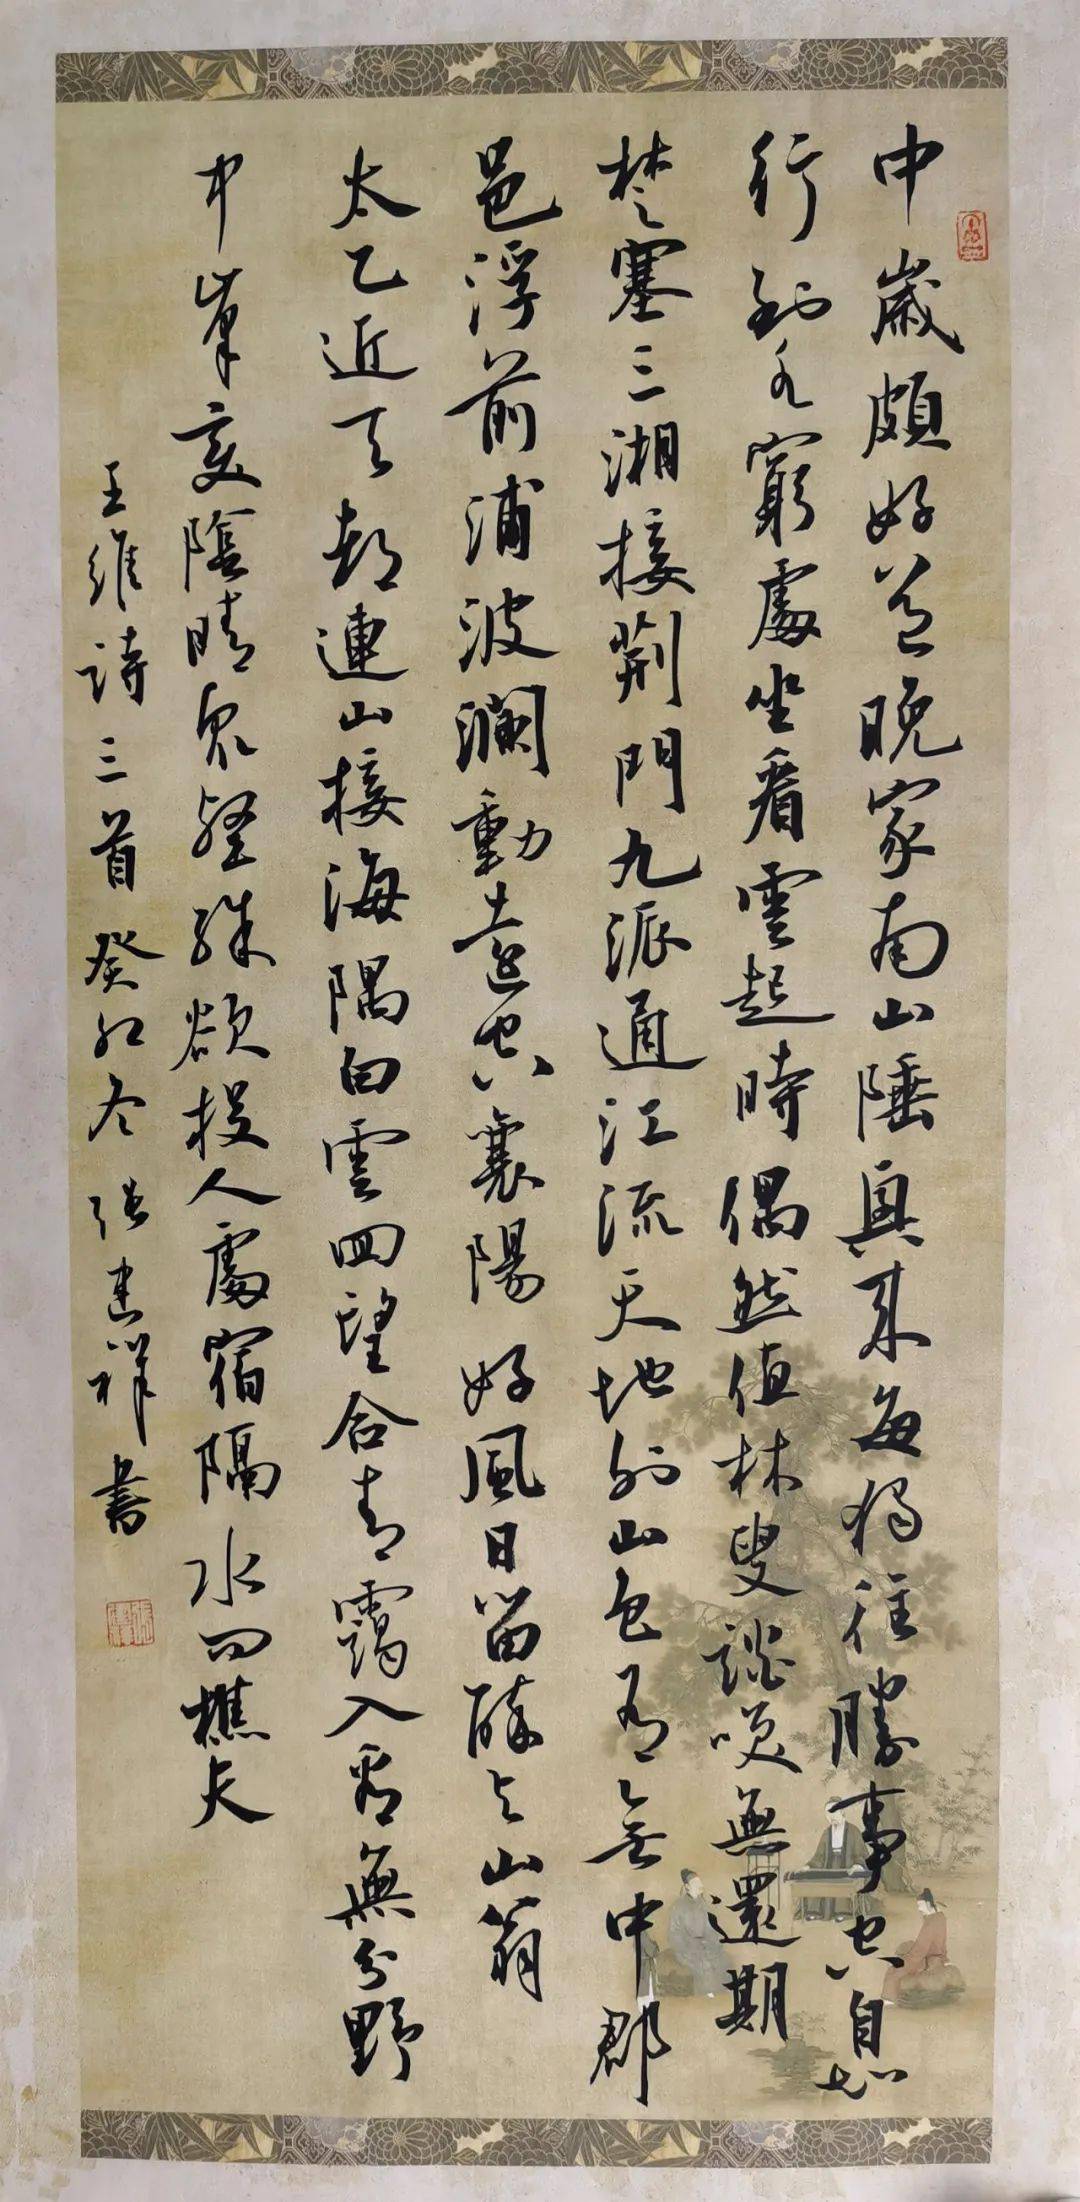 中歲頗好道晚家南山陲興來每獨往勝事空自知
行到水窮處坐看雲起時偶然值林叟談咲無還期
楚塞三湘接荊門九派通江流天地外山色有無中郡
邑浮前浦波瀾動遠空襄陽好風日留醉与山翁
太乙近天都連山接海隅白雲回望合青靄入看無分野
中峯變陰晴眾壑殊欲投人處宿隔水問樵夫
王維詩三首 癸卯冬 張建祥書